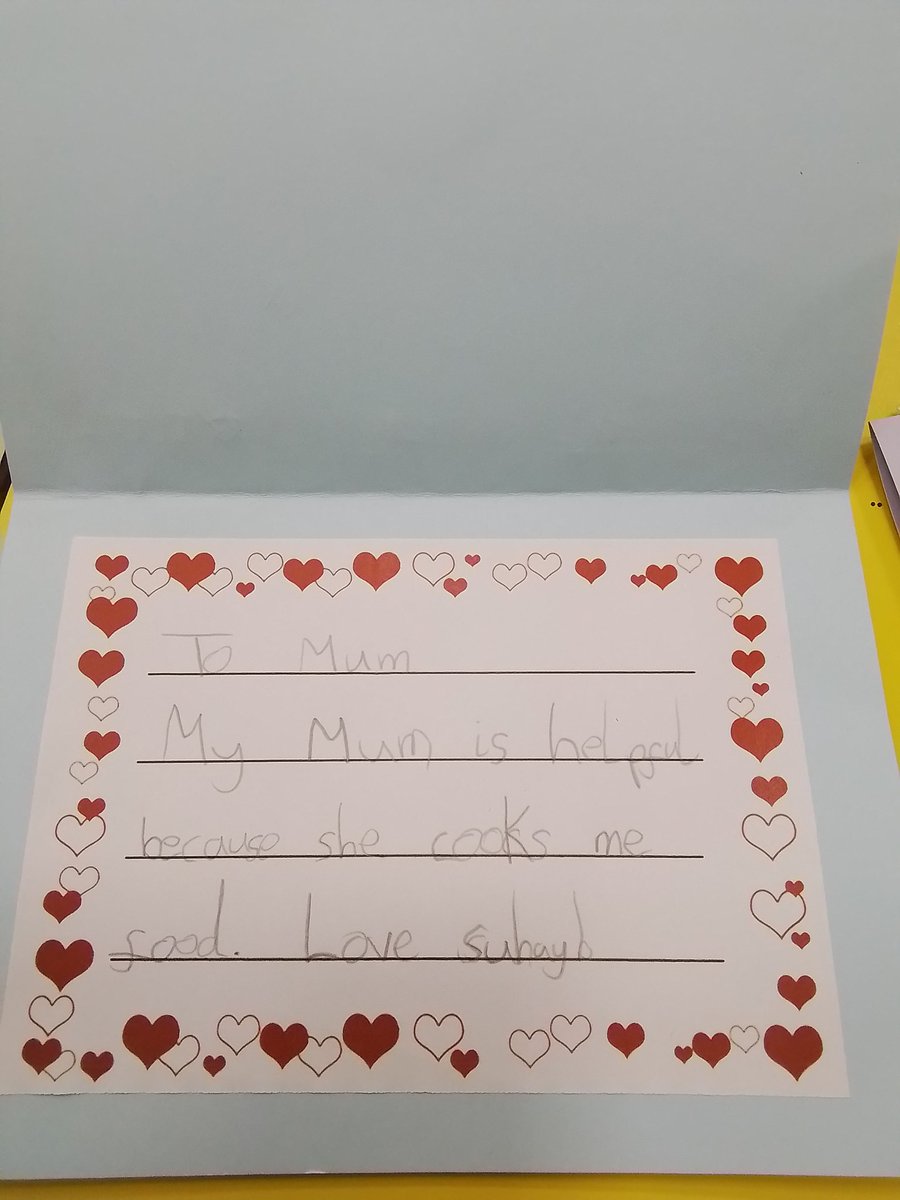 To Mum
My Mum is helpful
because she cooks me
food. Love suhayb